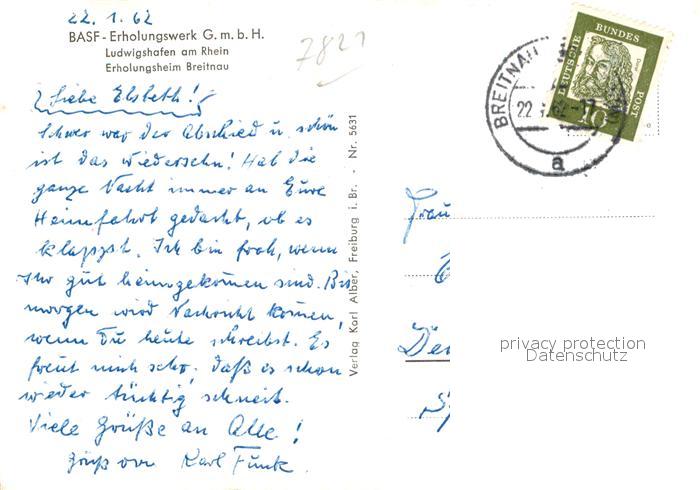 22. 1. 62
BASF - Erholungswerk G. m. b. H.
Ludwigshafen am Rhein
Erholungsheim Breitnau
7821
Liebe Elsbeth!
Schwer war der Abschied u. schön
ist das Wiedersehn! Hab die
ganze Nacht immer an Eure
Heimfahrt gedacht, ob es
klappt. Ich bin froh, wenn
Ihr gut heimgekommen sind. Bis
morgen wird Nachricht kommen,
wenn Du heute schreibst. Es
freut mich scho, daß es schon
wieder tüchtig schneit.
Viele Grüße an Alle!
Karl Funk.
Verlag Karl Alber, Freiburg i. Br. - Nr. 5631
BREITNAU
22. 1. 62-17
a
DEUTSCHE BUNDESPOST
10
Frau
privacy protection
Datenschutz